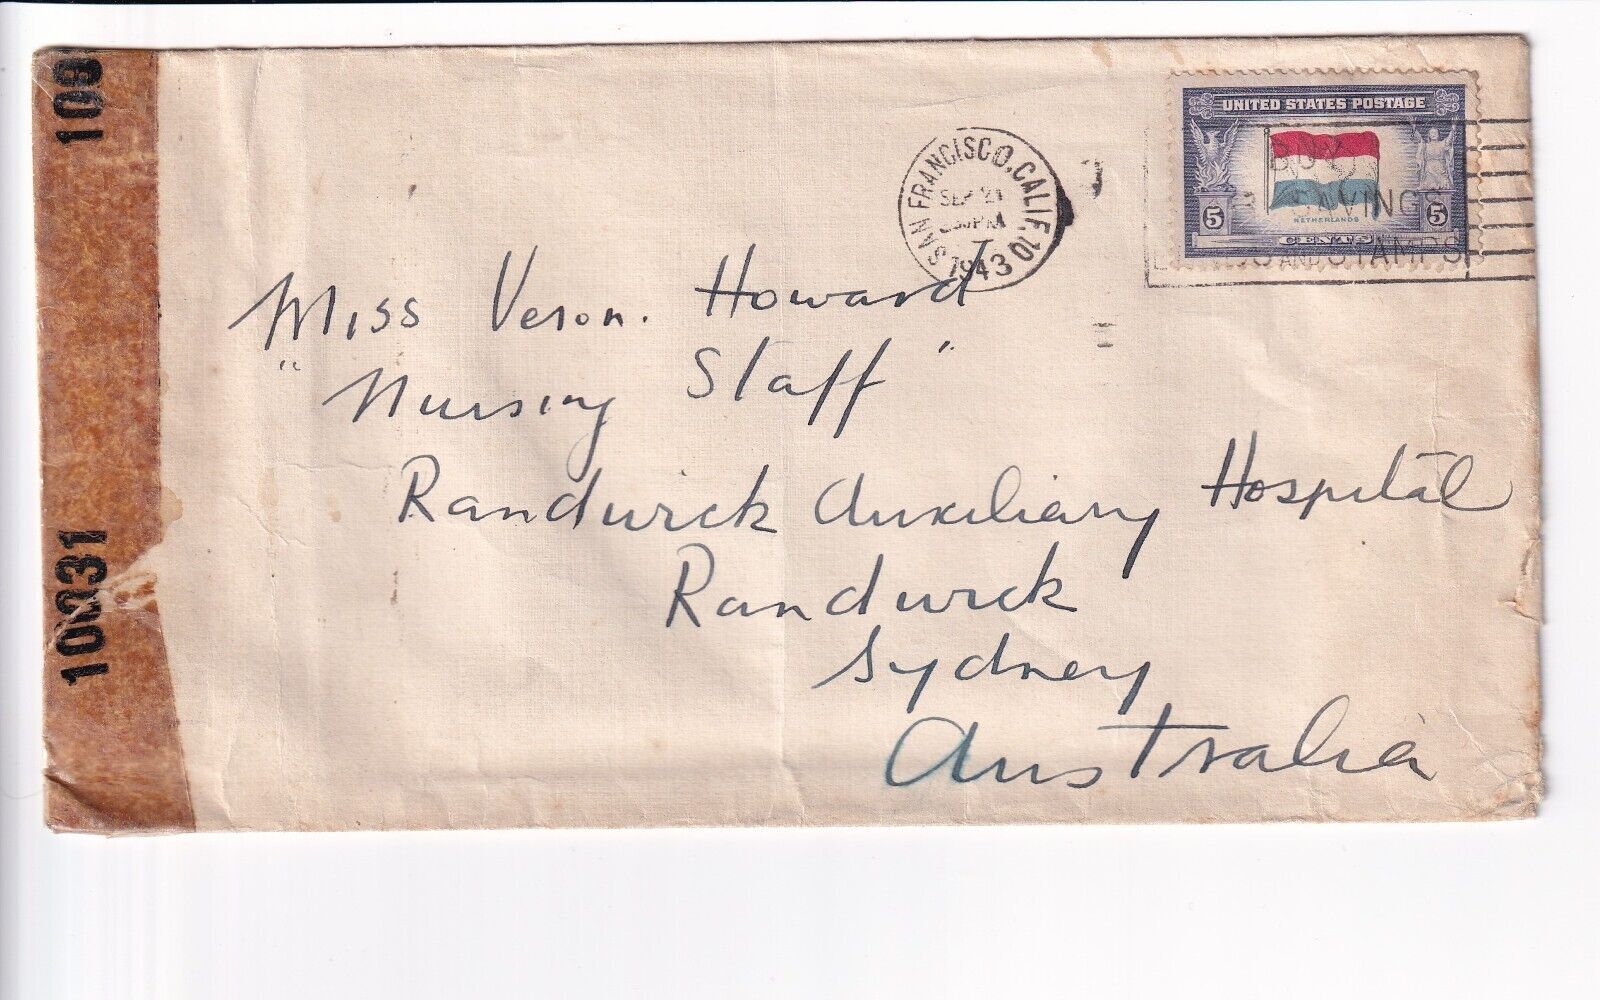 109
10031
SAN FRANCISCO, CALIF. 10
SEP 21
PM
1943
UNITED STATES POSTAGE
NETHERLANDS
5 5
CENTS
BUY
SAVINGS
AND STAMPS
Miss Veron. Howard
"Nursing Staff"
Randwick Auxiliary Hospital
Randwick
Sydney
Australia